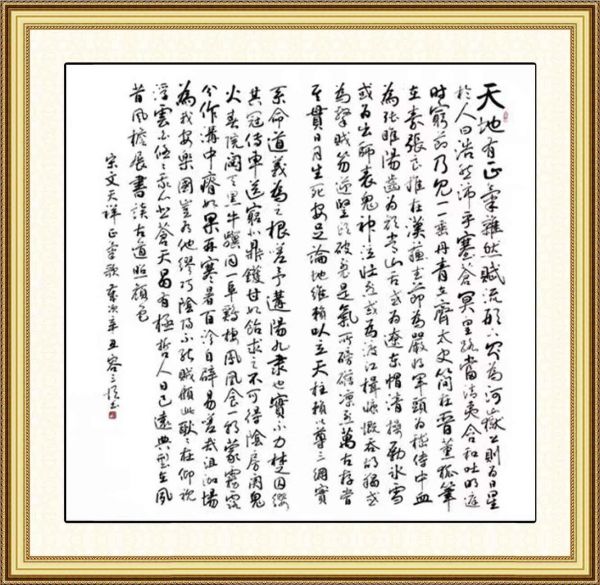 天地有正氣雜然賦流形下為河嶽上則為日星
於人曰浩然沛乎塞蒼冥皇路當清夷含和吐明庭
時窮節乃見一一垂丹青在齊太史簡在晉董狐筆
在秦張良椎在漢蘇武節為嚴將軍頭為嵇侍中血
為張睢陽齒為顏常山舌或為遼東帽清操勵冰雪
或為出師表鬼神泣壯烈或為渡江楫慷慨吞胡羯或
為擊賊笏逆豎頭破裂是氣所磅礴凜烈萬古存當
其貫日月生死安足論地維賴以立天柱賴以尊三綱實
系命道義為之根嗟予遘陽九隸也實不力楚囚纓
其冠傳車送窮北鼎鑊甘如飴求之不可得陰房闃鬼
火春院閟天黑牛驥同一皁雞棲鳳凰食一朝蒙霧露
分作溝中瘠如此再寒暑百沴自辟易嗟哉沮洳場
為我安樂國豈有他繆巧陰陽不能賊顧此耿耿在仰視
浮雲白悠悠我心悲蒼天曷有極哲人日已遠典型在夙
昔風檐展書讀古道照顏色
宋文天祥正氣歌歲次辛丑